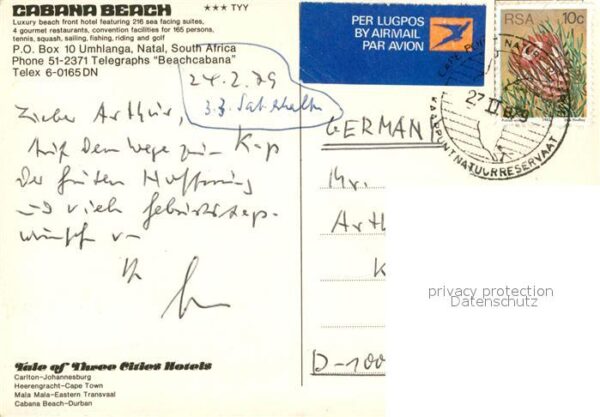 CABANA BEACH ★★★ TYY
Luxury beach front hotel featuring 216 sea facing suites,
4 gourmet restaurants, convention facilities for 165 persons,
tennis, squash, sailing, fishing, riding and golf
P.O. Box 10 Umhlanga, Natal, South Africa
Phone 51-2371 Telegraphs "Beachcabana"
Telex 6-0165 DN
PER LUGPOS
BY AIRMAIL
PAR AVION
RSA 10c
27 II
NATUURRESERVAAT
24.2.79
3.3.
Lieber Arthur,
Auf dem Wege zum Kap
der guten Hoffnung
viele Geburtstags-
wünsche
GERMANY
Mr.
Arth
K
D-100
privacy protection
Datenschutz
Tale of Three Cities Hotels
Carlton-Johannesburg
Heerengracht-Cape Town
Mala Mala-Eastern Transvaal
Cabana Beach-Durban